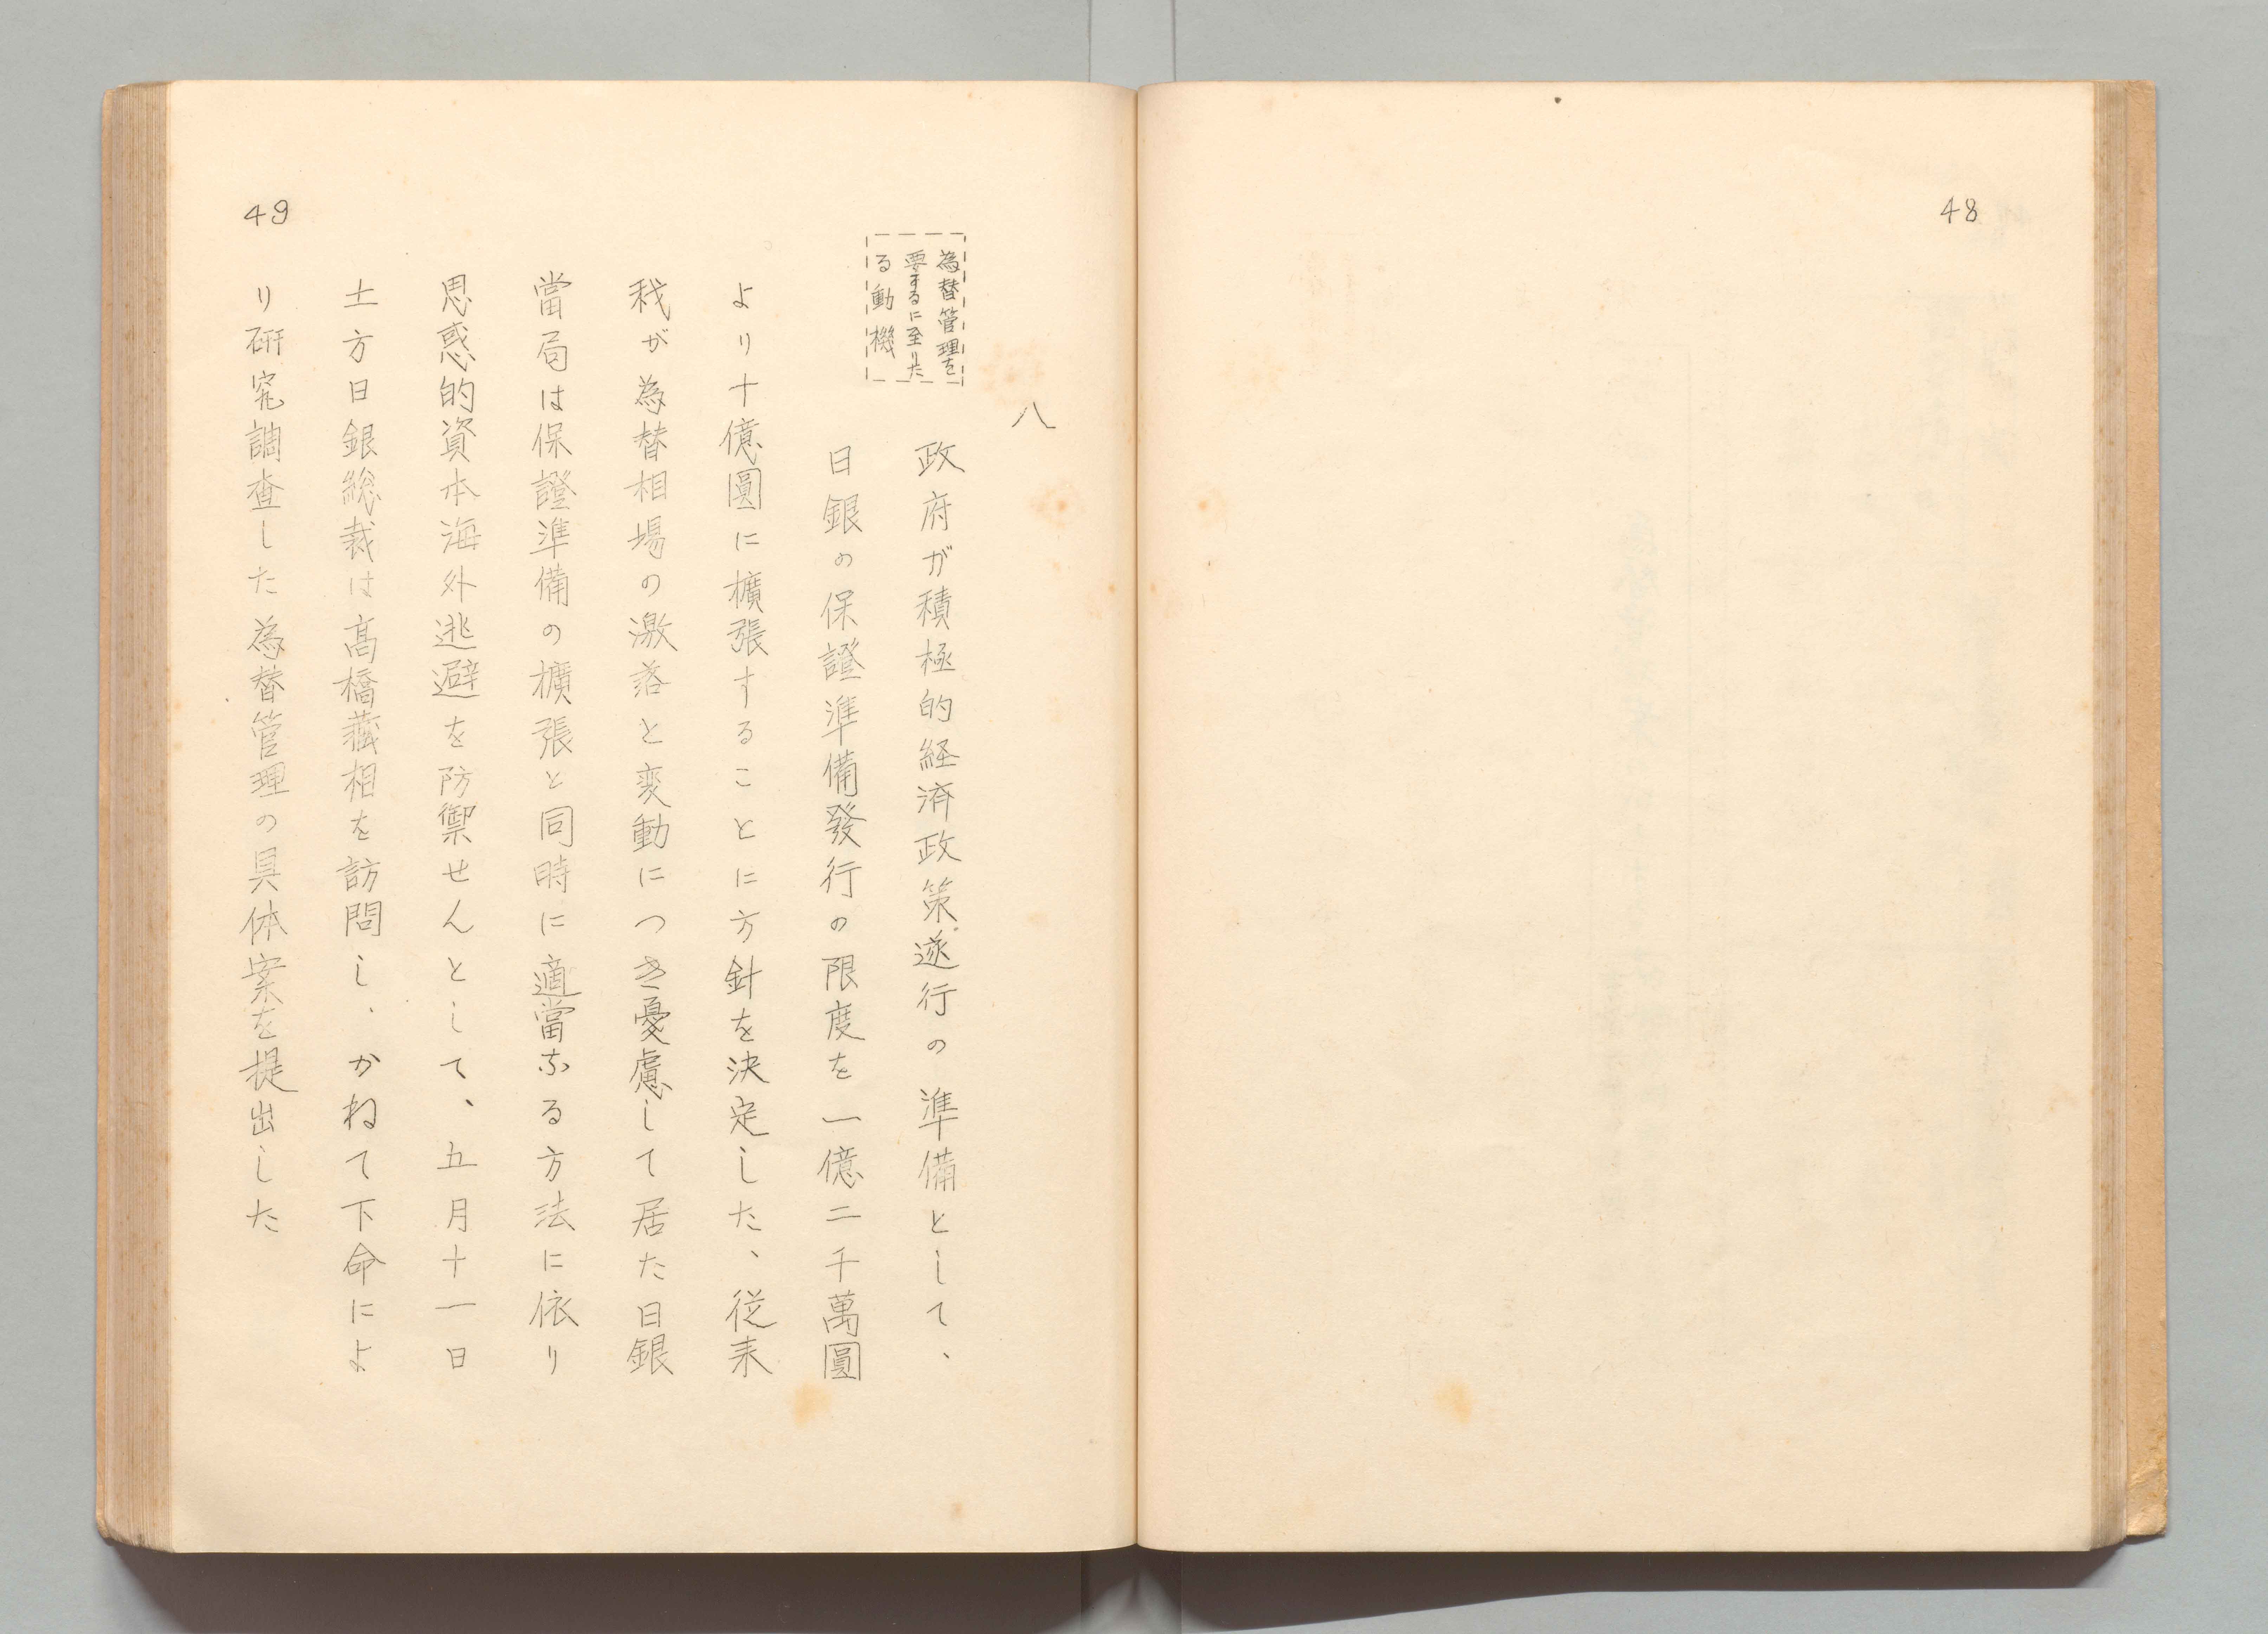 48
八
為替管理を
要するに至りた
る動機
政府が積極的経済政策遂行の準備として、
日銀の保證準備發行の限度を一億二千萬圓
より十億圓に擴張することに方針を決定した、従来
我が為替相場の激落と変動につき憂慮して居た日銀
當局は保證準備の擴張と同時に適當なる方法に依り
思惑的資本海外逃避を防禦せんとして、五月十一日
土方日銀総裁は髙橋蔵相を訪問し、かねて下命によ
り研究調査した為替管理の具体案を提出した
49